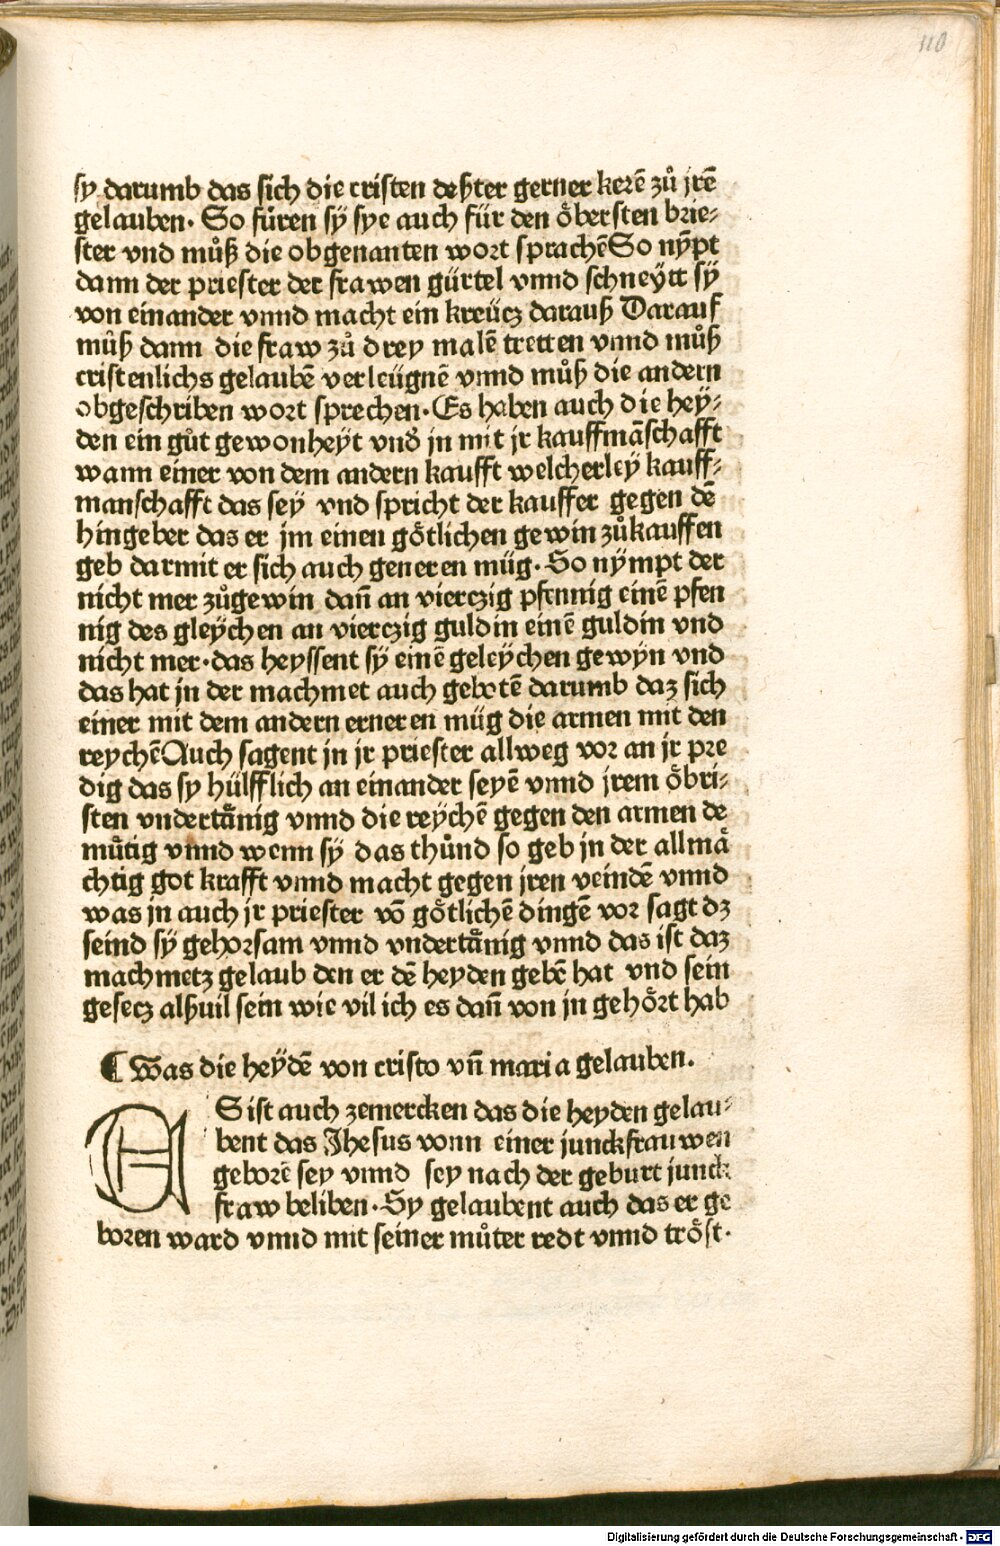 110
sy darumb das sich die cristen deßter gerner kerẽ zů jrẽ
gelauben. So fůren sÿ sye auch für den öbersten brie-
ster vnd můß die obgenanten wort sprachẽ So nÿpt
dann der priester der frawen gürtel vnnd schneÿtt sÿ
von einander vnnd macht ein kreücz darauß Darauf
můß dann die fraw zů drey malẽ tretten vnnd můß
cristenlichs gelaubẽ verleügnẽ vnnd můß die andern
obgeschriben wort sprechen. Es haben auch die hey-
den ein gůt gewonheÿt vnd jn mit jr kauffmãschafft
wann einer von dem andern kaufft welcherleÿ kauff-
manschafft das seÿ vnd spricht der kauffer gegen dẽ
hingeber das er jm einen götlichen gewin zůkauffen
geb darmit er sich auch generen müg. So nÿmpt der
nicht mer zůgewin dañ an vierczig pfennig einẽ pfen
nig des gleÿchen an vierczig guldin einẽ guldin vnd
nicht mer. das heyssent sÿ einẽ geleÿchen gewÿn vnd
das hat jn der machmet auch gebotẽ darumb daz sich
einer mit dem andern erneren müg die armen mit den
reychẽ Auch sagent jn jr priester allweg vor an jr pre
dig das sy hülfflich an einander seyẽ vnnd jrem öbri-
sten vndertånig vnnd die reÿchẽ gegen den armen de
mütig vnnd wenn sÿ das thůnd so geb jn der allmå
chtig got krafft vnnd macht gegen jren veindẽ vnnd
was jn auch jr priester võ götlichẽ dingẽ vor sagt dz
seind sÿ gehorsam vnnd vndertånig vnnd das ist daz
machmetz gelaub den er dẽ heyden gebẽ hat vnd sein
gesecz alßuil sein wie vil ich es dañ von jn gehört hab
¶ Was die heÿdẽ von cristo vñ maria gelauben.
ES ist auch zemercken das die heyden gelau-
bent das Jhesus vonn einer junckfrauwen
geborẽ sey vnnd sey nach der geburt junck
fraw beliben. Sy gelaubent auch das er ge
boren ward vnnd mit seiner můter redt vnnd tröst.
Digitalisierung gefördert durch die Deutsche Forschungsgemeinschaft - DFG